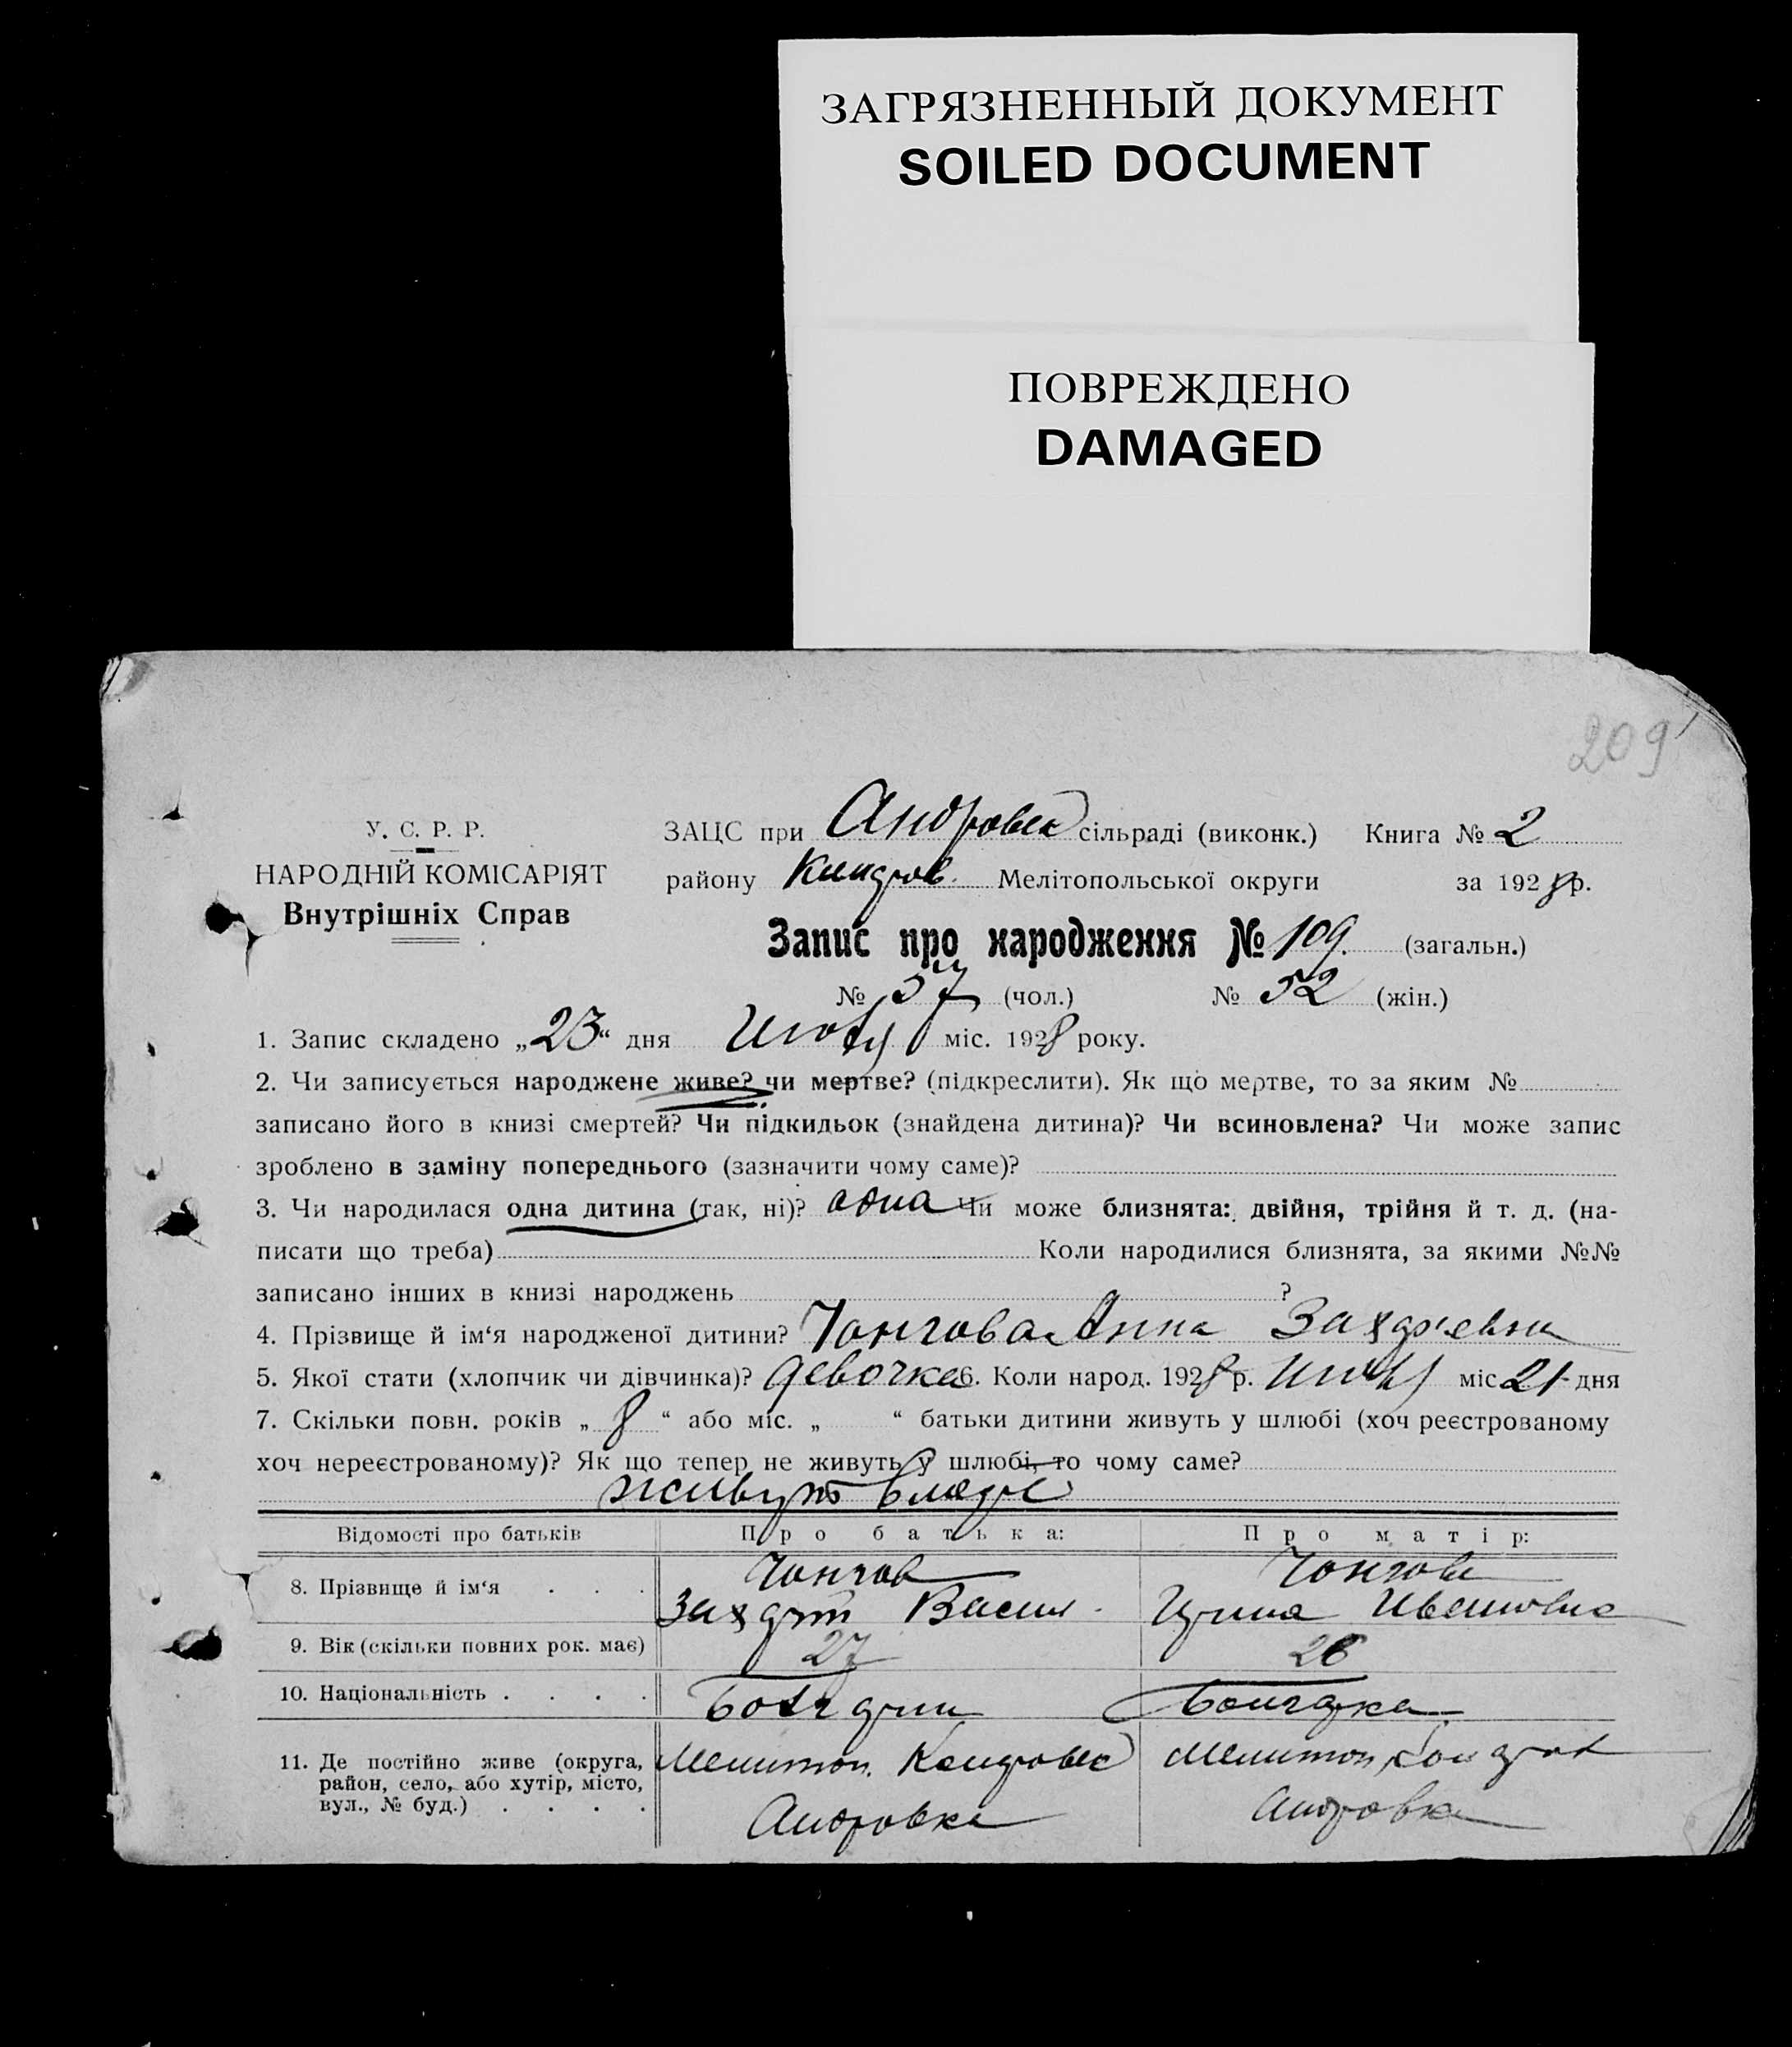 ЗАГРЯЗНЕННЫЙ ДОКУМЕНТ
SOILED DOCUMENT
ПОВРЕЖДЕНО
DAMAGED
209
У. С. Р. Р.
НАРОДНІЙ КОМІСАРІЯТ
Внутрішніх Справ
ЗАЦС при Андровск сільраді (виконк.) Книга № 2
району Мелітопольської округи за 1928 р.
Запис про народження № 109. (загальн.)
№ 57 (чол.) № 52 (жін.)
1. Запис складено „23“ дня міс. 1928 року.
2. Чи записується народжене живе? чи мертве? (підкреслити). Як що мертве, то за яким №
записано його в книзі смертей? Чи підкидьок (знайдена дитина)? Чи всиновлена? Чи може запис
зроблено в заміну попереднього (зазначити чому саме)?
3. Чи народилася одна дитина (так, ні)? одна Чи може близнята: двійня, трійня й т. д. (на-
писати що треба) Коли народилися близнята, за якими №№
записано інших в книзі народжень ?
4. Прізвище й ім‘я народженої дитини? Чонгова Анна
5. Якої стати (хлопчик чи дівчинка)? девочка 6. Коли народ. 1928 р. міс 21 дня
7. Скільки повн. років „ 8 “ або міс. „ “ батьки дитини живуть у шлюбі (хоч реєстрованому
хоч нереєстрованому)? Як що тепер не живуть у шлюбі, то чому саме?
живут
Відомості про батьків Про батька: Про матір:
8. Прізвище й ім‘я . . . Чонгов Чонгова
Васил. Ирина Ивановна
9. Вік (скільки повних рок. має) 27 26
10. Національність . . . . Болгарин Болгарка
11. Де постійно живе (округа, Мелитоп. Мелитоп
район, село, або хутір, місто,
вул., № буд.) . . . . Андровка Андровка